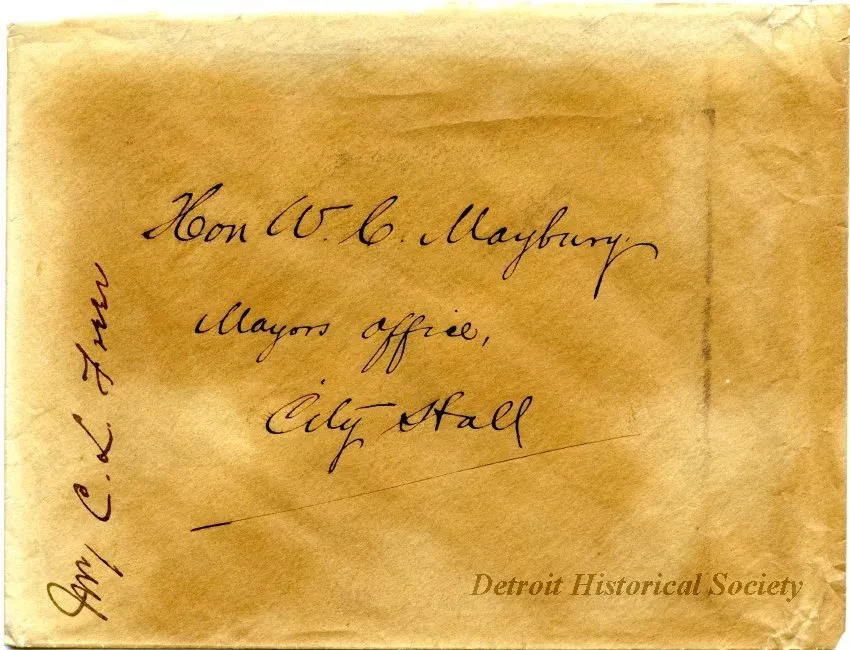 Hon W. C. Maybury
Mayors office,
City Hall
C. L.
Detroit Historical Society